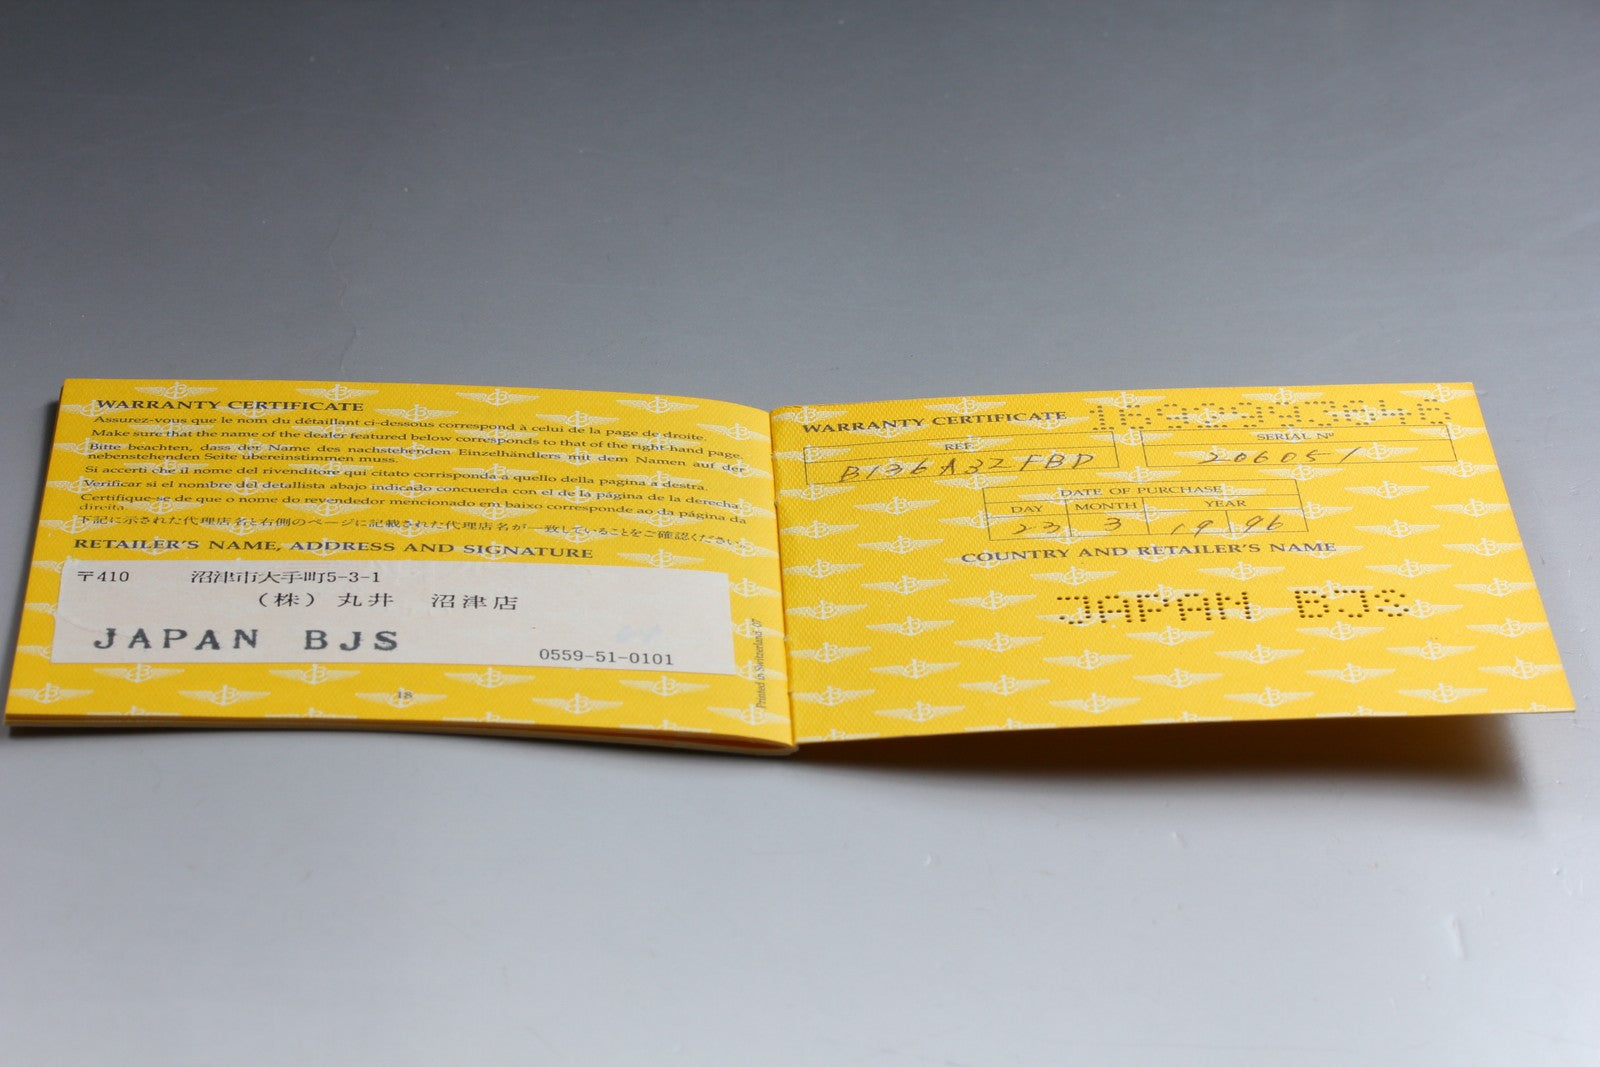 WARRANTY CERTIFICATE
Assurez-vous que le nom du détaillant ci-dessous correspond à celui de la page de droite.
Make sure that the name of the dealer featured below corresponds to that of the right-hand page.
Bitte beachten, dass der Name des nachstehenden Einzelhändlers mit dem Namen auf der
nebenstehenden Seite übereinstimmen muss.
Si accerti che il nome del rivenditore qui citato corrisponda a quello della pagina a destra.
Verificar si el nombre del detallista abajo indicado concuerda con el de la página de la derecha.
Certifique-se de que o nome do revendedor mencionado em baixo corresponde ao da página da
direita.
下記に示された代理店名と右側のページに記載された代理店名が一致していることをご確認ください。
RETAILER'S NAME, ADDRESS AND SIGNATURE
〒410 沼津市大手町5-3-1
(株) 丸井 沼津店
JAPAN BJS
0559-51-0101
18
Printed in Switzerland-07
WARRANTY CERTIFICATE
REF.
SERIAL Nº
206051
DATE OF PURCHASE
DAY MONTH YEAR
23 3 19 96
COUNTRY AND RETAILER'S NAME
JAPAN BJS